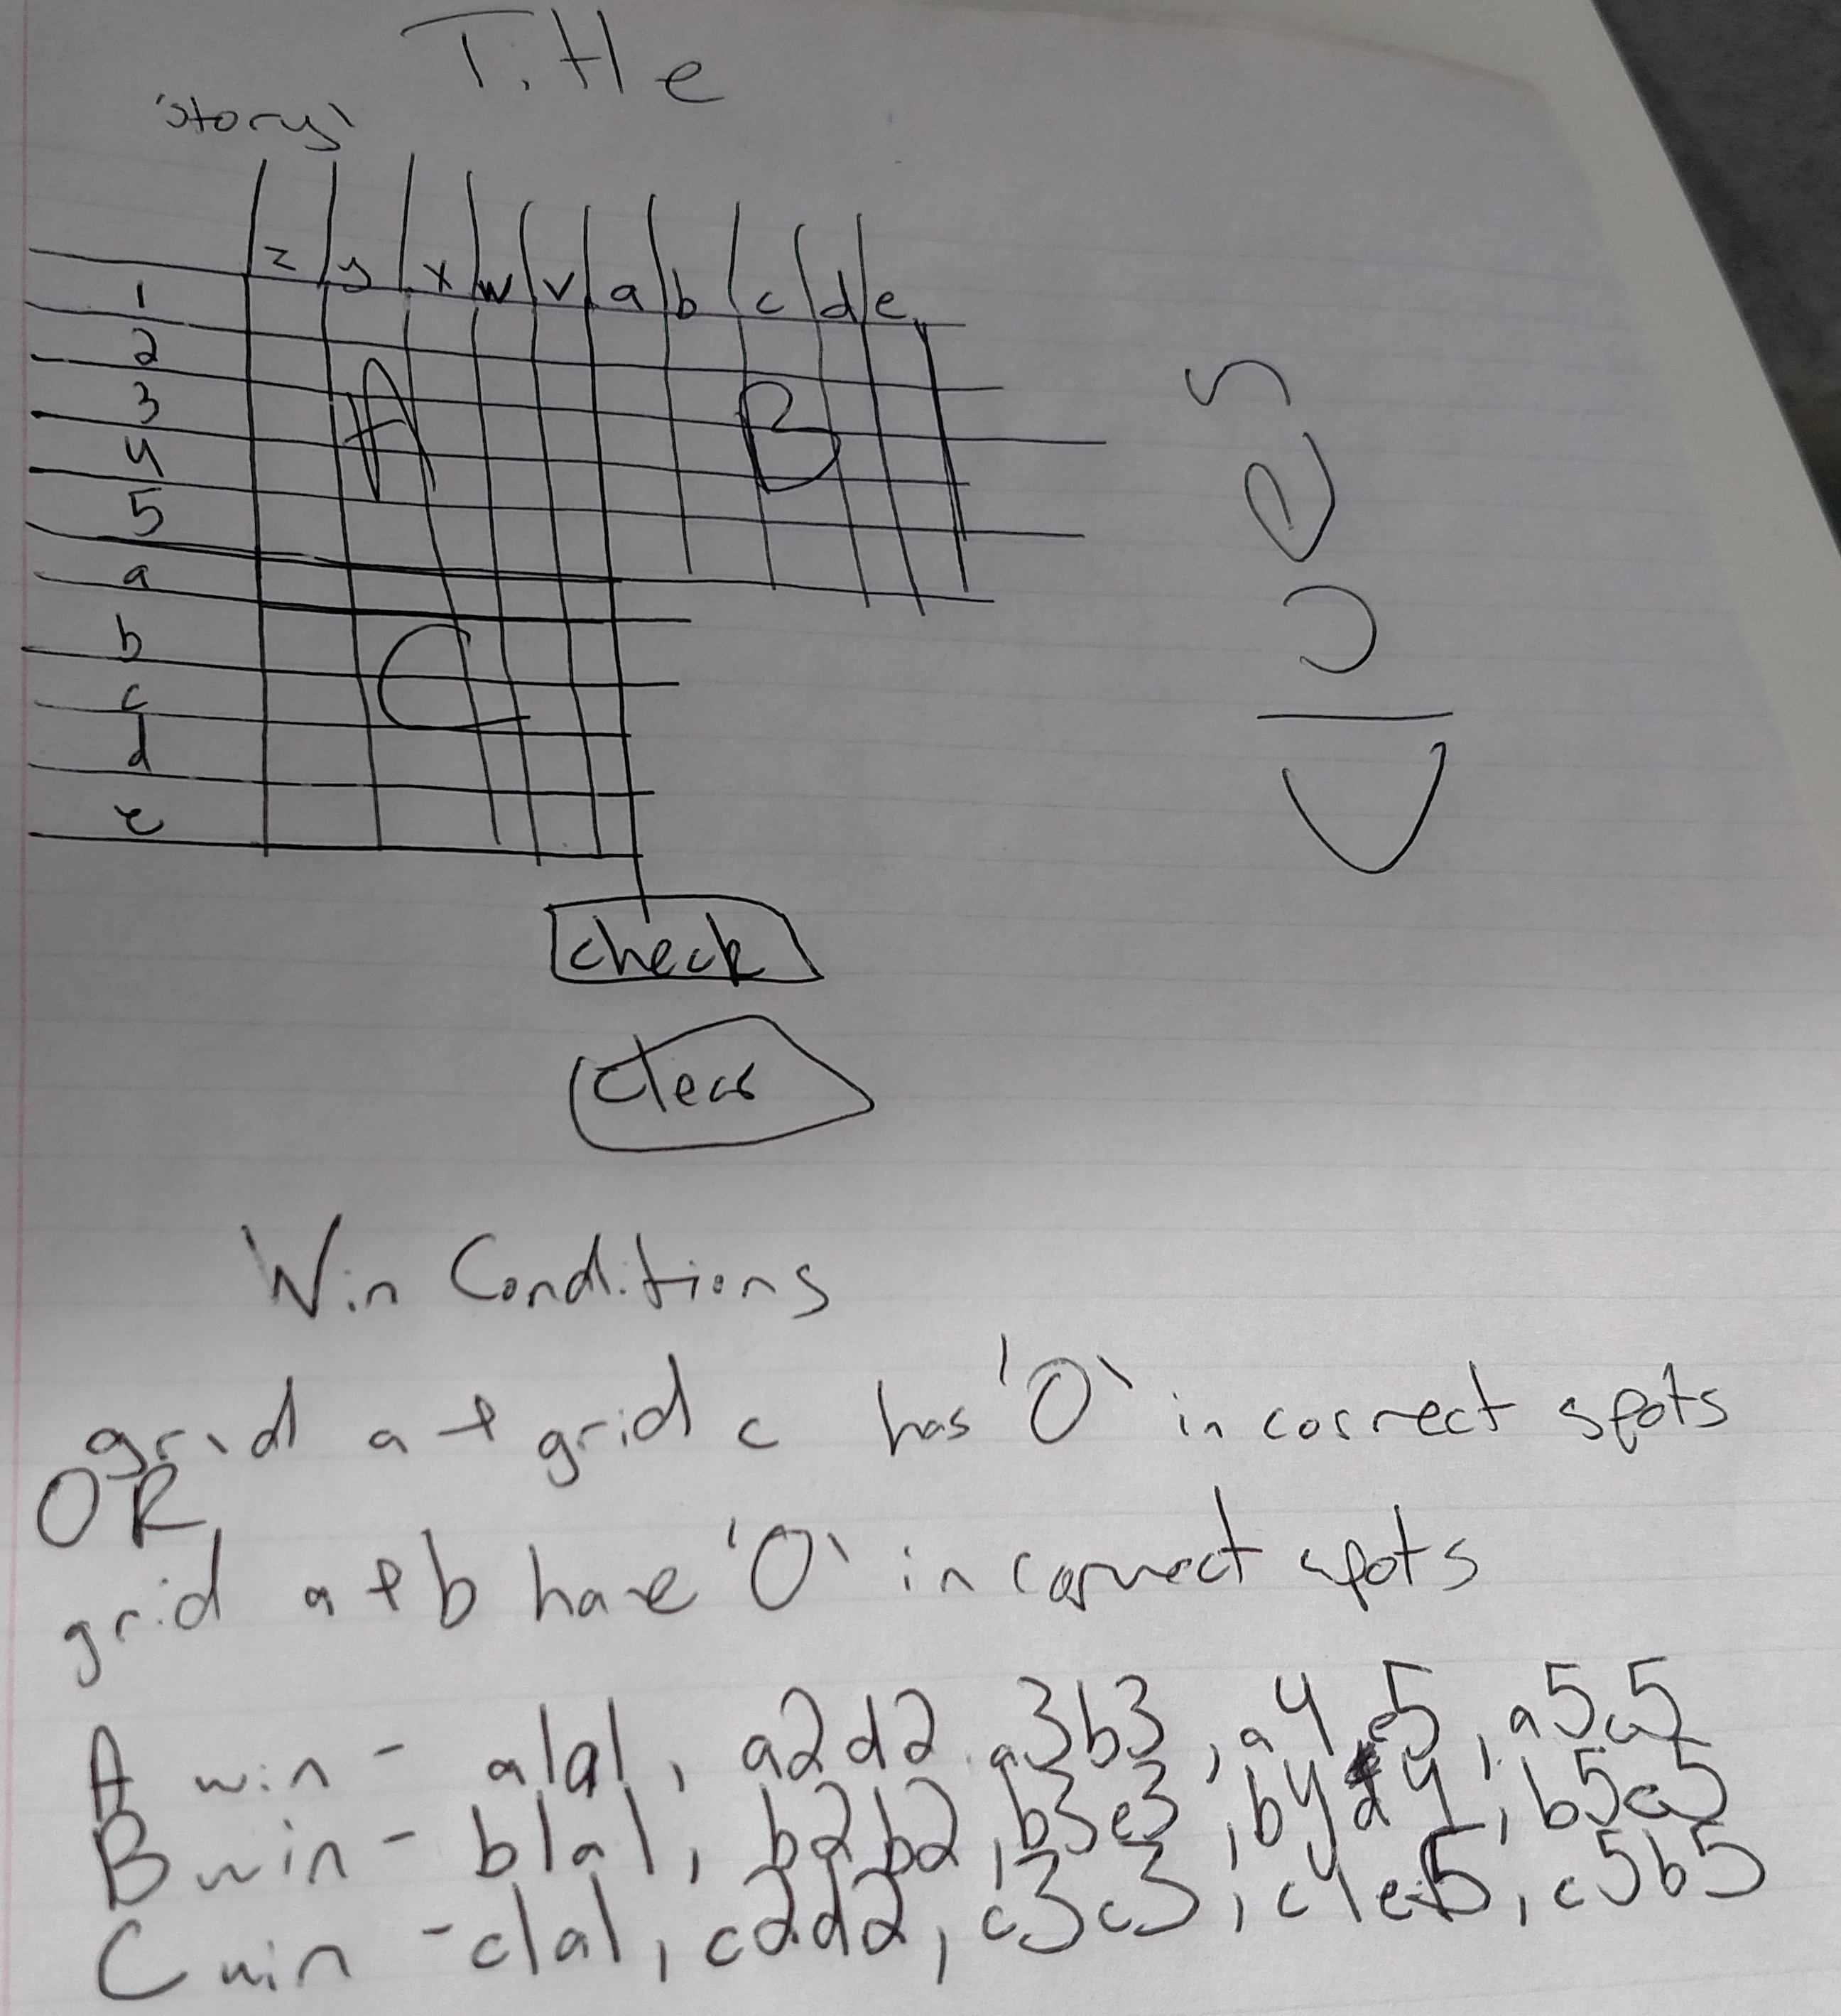 Title
'story'
z y x w v a b c d e
1
2
3
4
5
a
b
c
d
e
A
B
C
Clues
check
clear
Win Conditions
grid a + grid c has 'O' in correct spots
OR
grid a + b have 'O' in correct spots
A win - a1a1, a2d2, a3b3, a4e5, a5c5
B win - b1a1, b2b2, b3e3, b4d4, b5c5
C win - c1a1, c2d2, c3c3, c4e5, c5b5